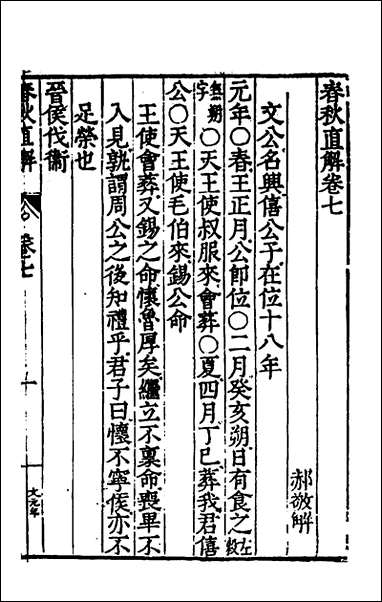 春秋直解卷七
郝敬解
文公名興僖公子在位十八年
元年○春王正月公卽位○二月癸亥朔日有食之左穀
無朔字○天王使叔服來會葬○夏四月丁巳葬我君僖
公○天王使毛伯來錫公命
王使會葬又錫之命懷魯厚矣繼立不稟命喪畢不
入見孰謂周公之後知禮乎君子曰懷不寧侯亦不
足榮也
晉侯伐衞
春秋直解 卷七 一 文元年